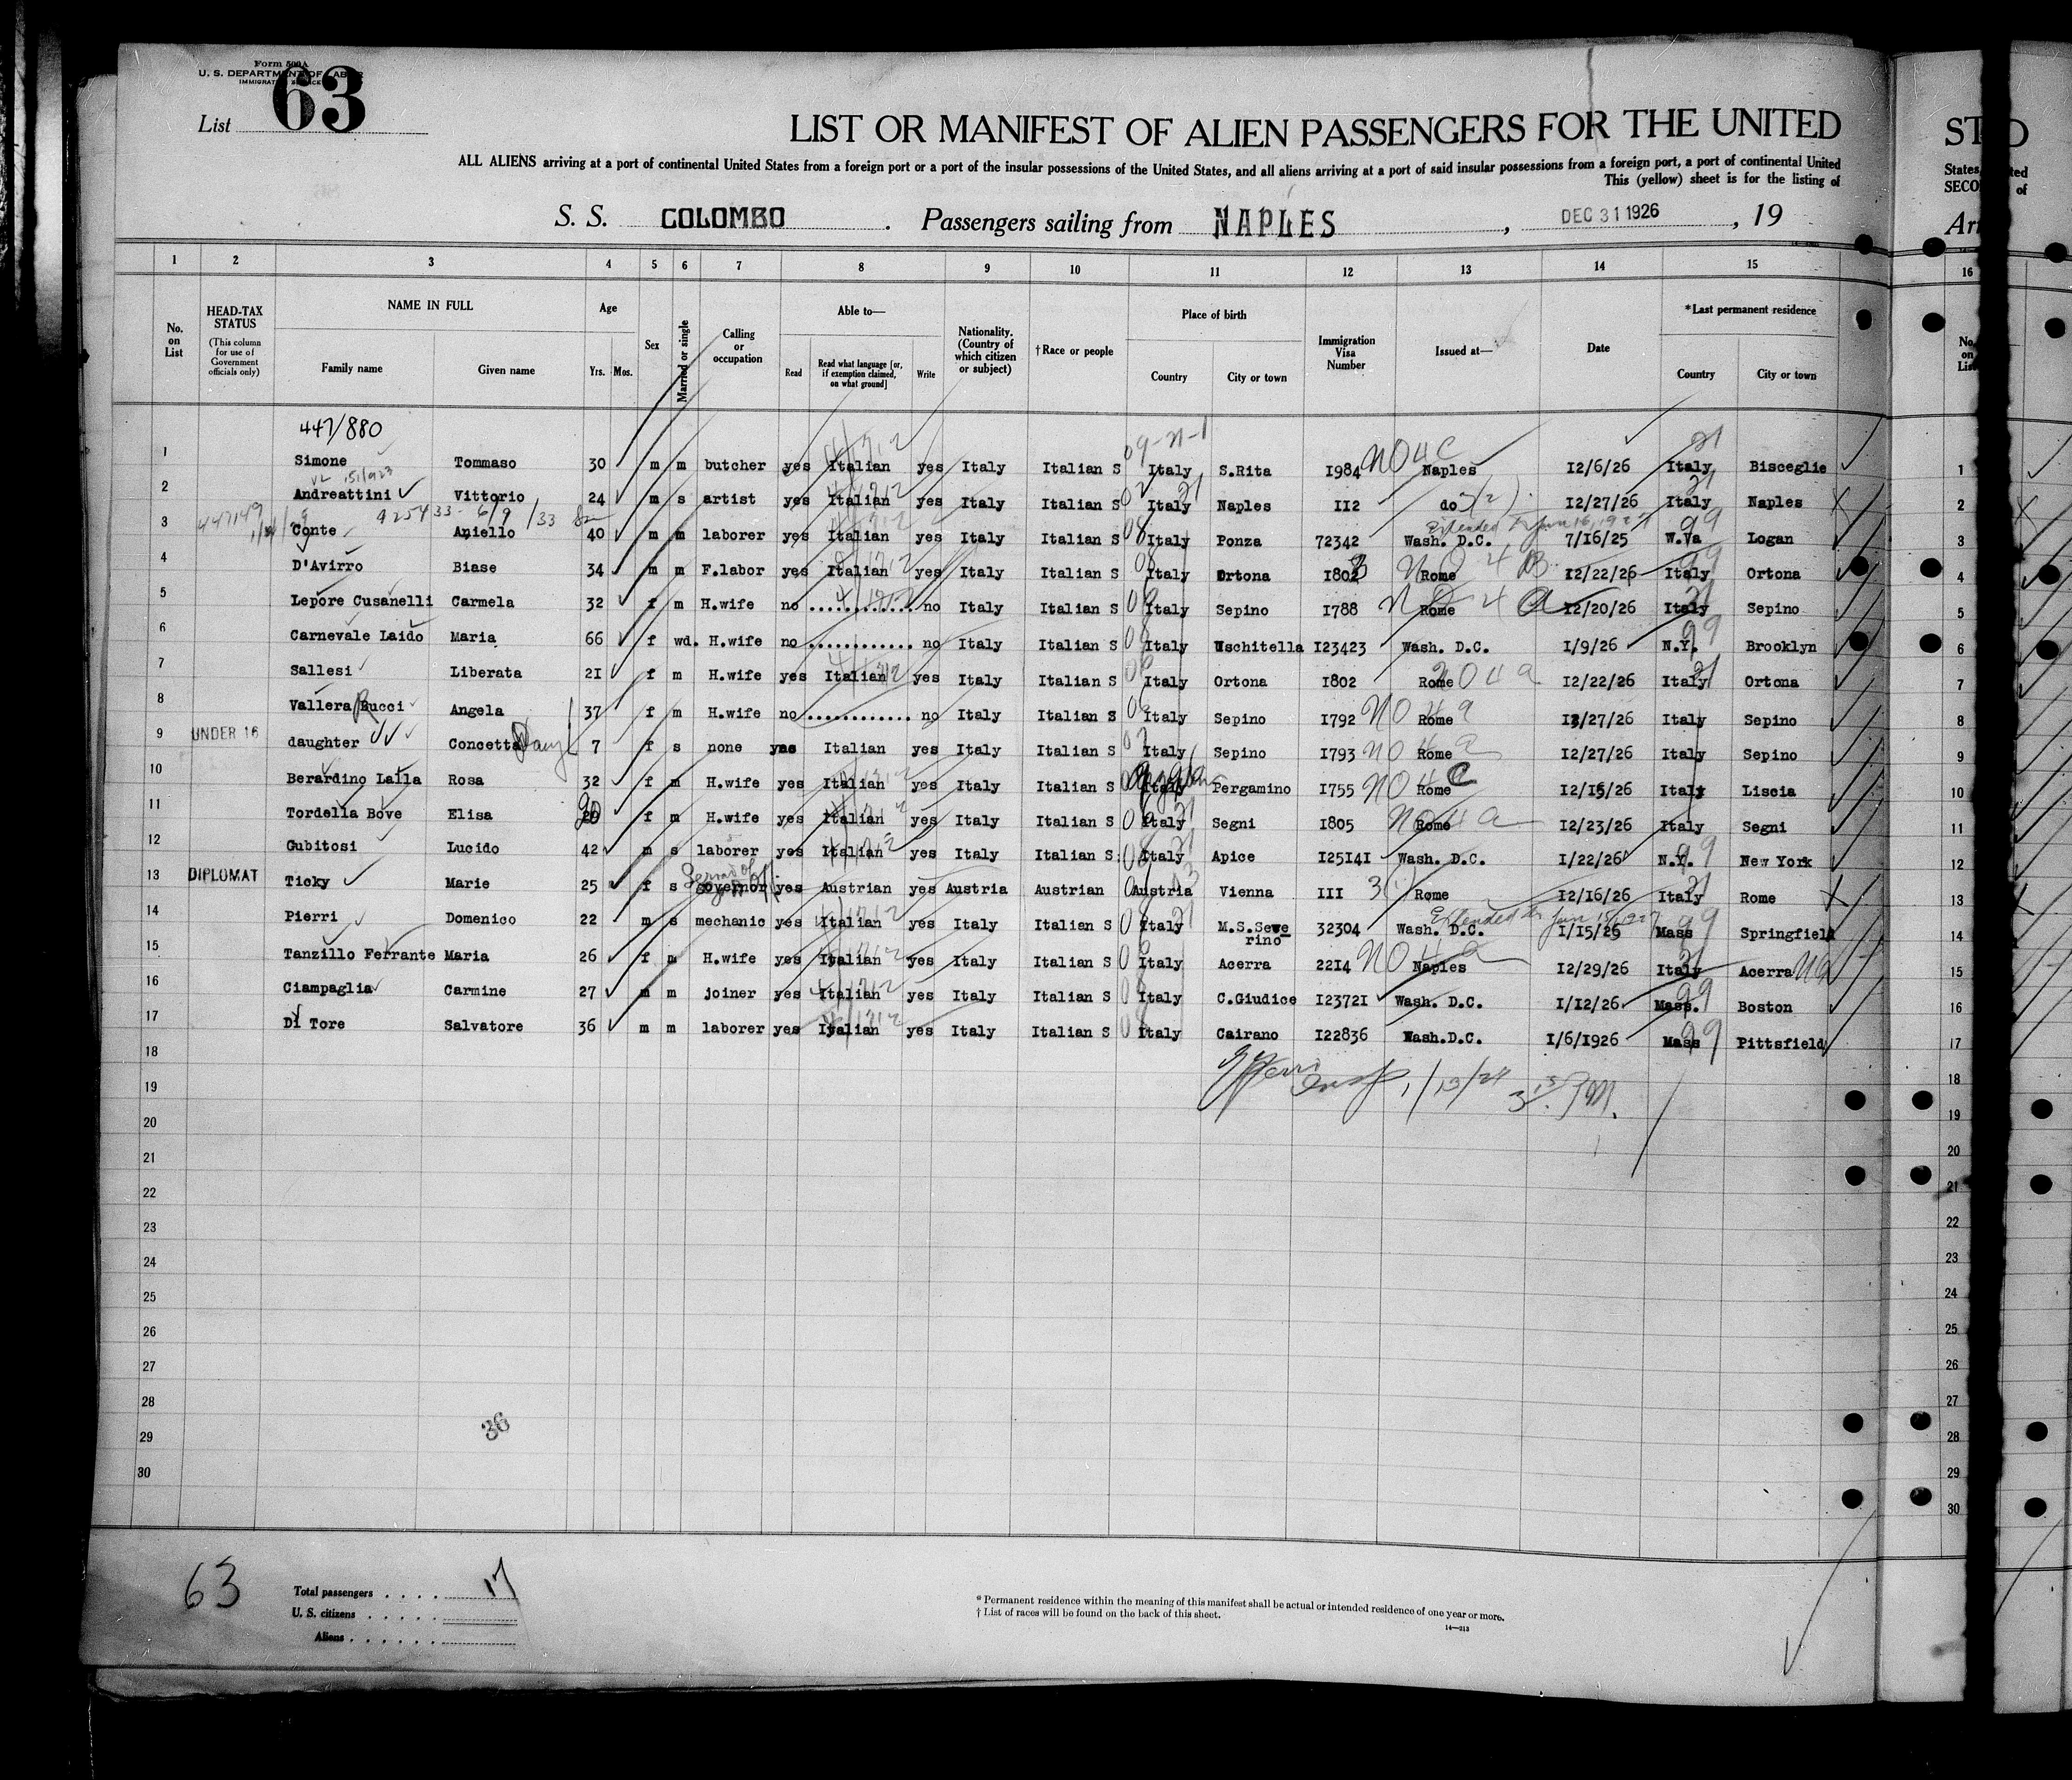 Form 500A
U. S. DEPARTMENT OF LABOR
IMMIGRATION SERVICE
List 63
LIST OR MANIFEST OF ALIEN PASSENGERS FOR THE UNITED
ST D
ALL ALIENS arriving at a port of continental United States from a foreign port or a port of the insular possessions of the United States, and all aliens arriving at a port of said insular possessions from a foreign port, a port of continental United
This (yellow) sheet is for the listing of
States, ted
SECO of
S. S. COLOMBO . Passengers sailing from NAPLES , DEC 31 1926 , 19
Arr
1 2 3 4 5 6 7 8 9 10 11 12 13 14 15 16
No. on List
HEAD-TAX STATUS
(This column for use of Government officials only)
NAME IN FULL
Family name Given name
Age
Yrs. Mos.
Sex
Married or single
Calling or occupation
Able to—
Read
Read what language [or, if exemption claimed, on what ground]
Write
Nationality. (Country of which citizen or subject)
†Race or people
Place of birth
Country City or town
Immigration Visa Number
Issued at—
Date
*Last permanent residence
Country City or town
No. on List
447/880
1 Simone Tommaso 30 m m butcher yes Italian yes Italy Italian S Italy S.Rita 1984 NO 4C Naples 12/6/26 Italy Bisceglie 1
151/923
2 Andreattini Vittorio 24 m s artist yes Italian yes Italy Italian S Italy Naples 112 do 3(2) 12/27/26 Italy Naples 2
447149 425433 - 6/9/33
Extended to Jun 16, 1927
3 Conte Aniello 40 m m laborer yes Italian yes Italy Italian S Italy Ponza 72342 Wash. D.C. 7/16/25 W.Va Logan 3
4 D'Avirro Biase 34 m m F.labor yes Italian yes Italy Italian S Italy Ortona 1803 NO 4 B Rome 12/22/26 Italy Ortona 4
5 Lepore Cusanelli Carmela 32 f m H.wife no ............ no Italy Italian S Italy Sepino 1788 NO 4 a Rome 12/20/26 Italy Sepino 5
6 Carnevale Laido Maria 66 f wd. H.wife no ............ no Italy Italian S Italy Uschitella 123423 Wash. D.C. 1/9/26 N.Y. Brooklyn 6
7 Sallesi Liberata 21 f m H.wife yes Italian yes Italy Italian S Italy Ortona 1802 NO 4 a Rome 12/22/26 Italy Ortona 7
8 Vallera Rucci Angela 37 f m H.wife no ............ no Italy Italian S Italy Sepino 1792 NO 4 a Rome 12/27/26 Italy Sepino 8
9 UNDER 16 daughter Concetta 7 f s none yes Italian yes Italy Italian S Italy Sepino 1793 NO 4 a Rome 12/27/26 Italy Sepino 9
10 Berardino Lalla Rosa 32 f m H.wife yes Italian yes Italy Italian S Italy Pergamino 1755 NO 4 C Rome 12/15/26 Italy Liscia 10
11 Tordella Bove Elisa 20 f m H.wife yes Italian yes Italy Italian S Italy Segni 1805 NO 4 a Rome 12/23/26 Italy Segni 11
12 Gubitosi Lucido 42 m s laborer yes Italian yes Italy Italian S. Italy Apice 125141 Wash. D.C. 1/22/26 N.Y. New York 12
13 DIPLOMAT Ticky Marie 25 f s governor yes Austrian yes Austria Austrian Austria Vienna 111 3(1) Rome 12/16/26 Italy Rome 13
Extended to Jun 15, 1927
14 Pierri Domenico 22 m s mechanic yes Italian yes Italy Italian S Italy M.S.Seve rino 32304 Wash. D.C. 1/15/25 Mass Springfield 14
15 Tanzillo Ferrante Maria 26 f m H.wife yes Italian yes Italy Italian S Italy Acerra 2214 NO 4 a Naples 12/29/26 Italy Acerra 15
16 Ciampaglia Carmine 27 m m joiner yes Italian yes Italy Italian S Italy C.Giudice 123721 Wash. D.C. 1/12/26 Mass. Boston 16
17 Di Tore Salvatore 36 m m laborer yes Italian yes Italy Italian S Italy Cairano 122836 Wash.D.C. 1/6/1926 Mass Pittsfield 17
18 18
19 19
20 20
21 21
22 22
23 23
24 24
25 25
26 26
27 27
28 28
29 29
30 30
36
63
Total passengers . . . . 17
U. S. citizens . . . . .
Aliens . . . . . .
* Permanent residence within the meaning of this manifest shall be actual or intended residence of one year or more.
† List of races will be found on the back of this sheet.
14—213